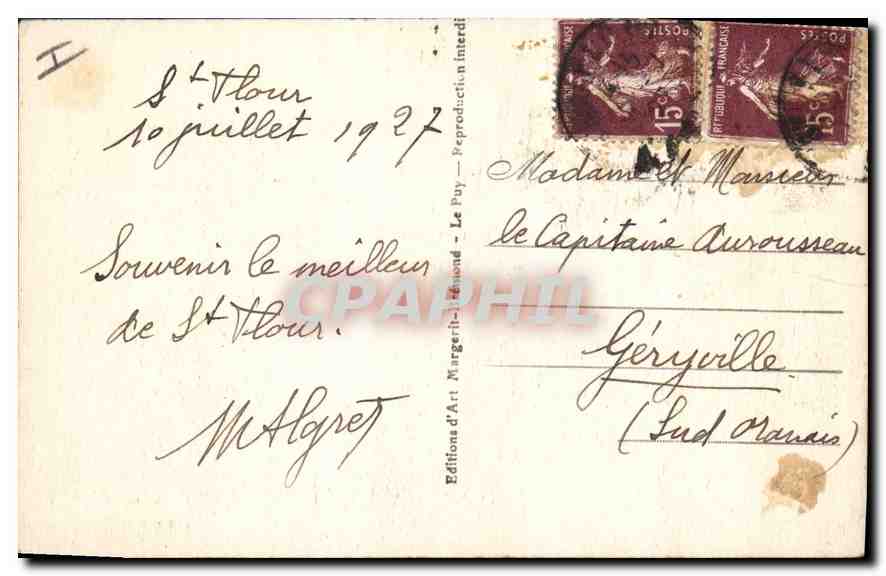 H
St Flour
10 juillet 1927
Souvenir le meilleur
de St Flour.
Editions d'Art Margerit-Brémond - Le Puy — Reproduction interdi
REPUBLIQUE FRANÇAISE
POSTES
15c
REPUBLIQUE FRANÇAISE
POSTES
15c
Madame et Monsieur
le Capitaine Aurousseau
Géryville
(Sud Oranais)
CPAPHIL